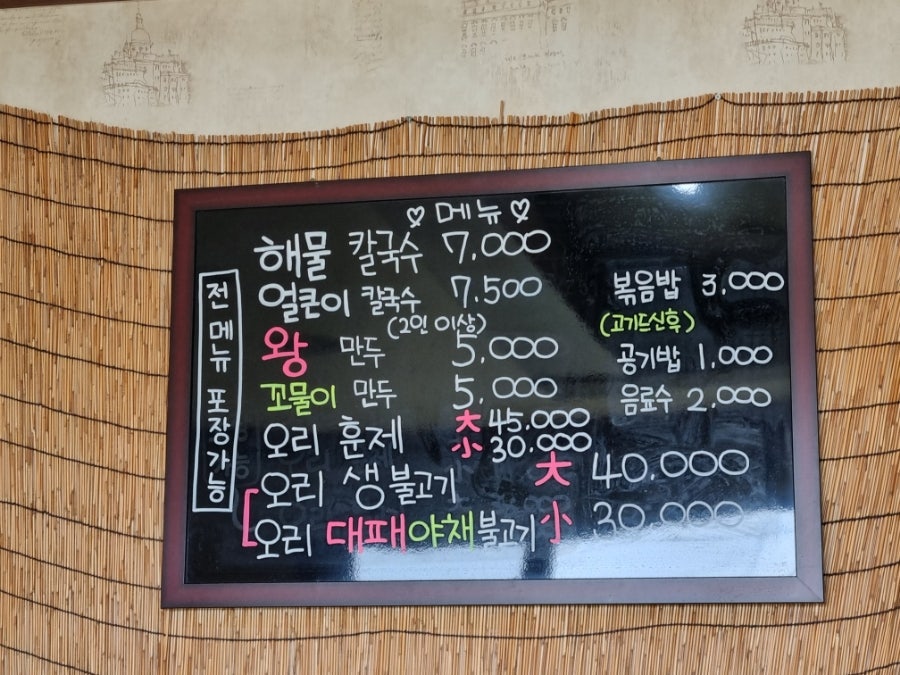 ♡ 메뉴 ♡
전메뉴 포장가능
해물 칼국수 7,000
얼큰이 칼국수 7.500
(2인 이상)
왕 만두 5.000
꼬물이 만두 5.000
오리 훈제 大 45.000
小 30.000
오리 생불고기 大 40.000
오리 대패야채불고기 小 30.000
볶음밥 3.000
(고기드신후)
공기밥 1.000
음료수 2.000